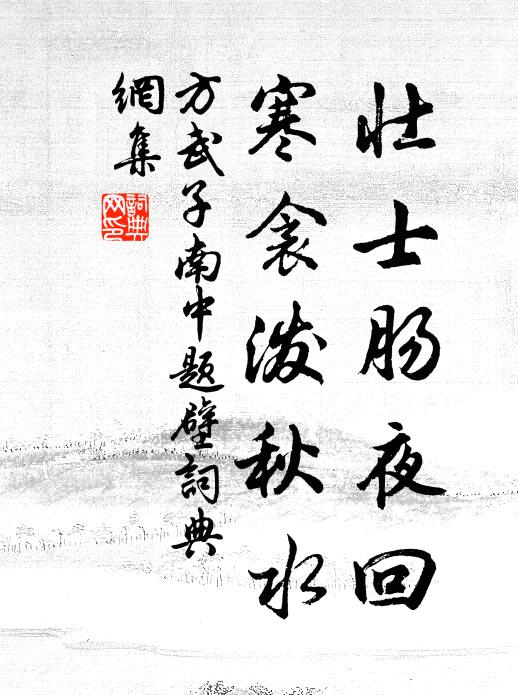 壮士肠夜回
寒衾泼秋水
方武子南中题壁词典
網集
詞典
网印